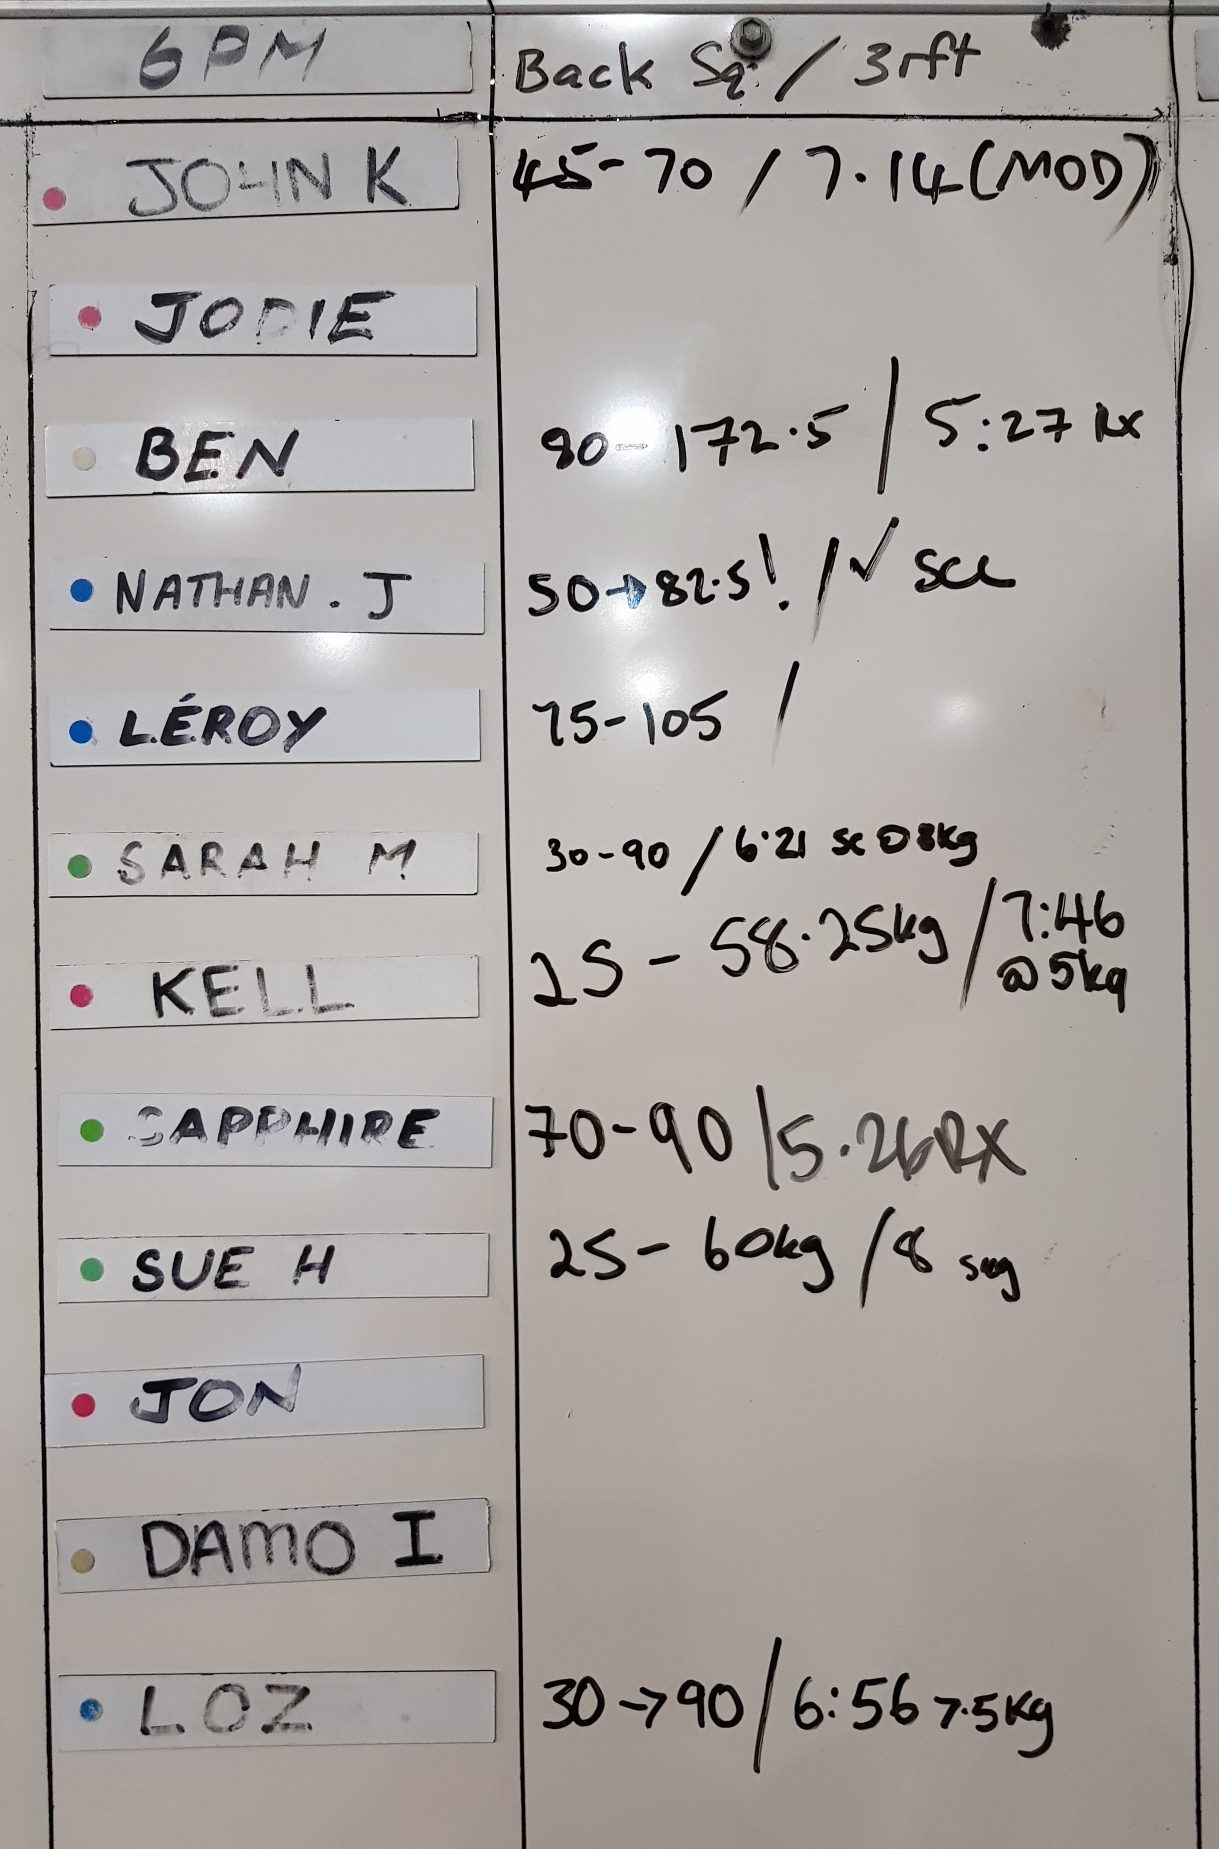 6PM Back Sq. / 3rft
JOHN K 45-70 / 7.14 (MOD)
JODIE
BEN 90 - 172.5 / 5:27 RX
NATHAN. J 50→82.5! /✓ SCL
LÉROY 75-105 /
SARAH M 30-90 / 6:21 sc @8kg
KELL 25 - 58.25kg / 7:46
@5kg
SAPPHIRE 70-90 / 5.26 RX
SUE H 25 - 60kg / 8 5kg
JON
DAMO I
LOZ 30→90 / 6:56 7.5kg